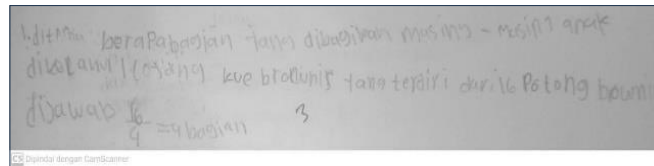 1. ditanya berapa bagian yang dibagikan masing - masing anak
diketahui 1 loyang kue brounis yang terdiri dari 16 Potong bouni
dijawab 16/4 = 4 bagian 3
CS Dipindai dengan CamScanner